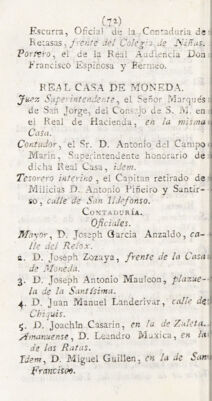 (72)
Escurra, Oficial de la Contaduría de
Retasas, frente del Colegio de Niñas.
Portero, el de la Real Audiencia Don
Francisco Espinosa y Bermeo.
REAL CASA DE MONEDA.
Juez Superintendente, el Señor Marqués
de San Jorge, del Consejo de S. M. en
el Real de Hacienda, en la misma
Casa.
Contador, el Sr. D. Antonio del Campo
Marin, Superintendente honorario de
dicha Real Casa, idem.
Tesorero interino, el Capitan retirado de
Milicias D. Antonio Piñeiro y Santir-
so, calle de San Ildefonso.
CONTADURÍA.
Oficiales.
Mayor, D. Joseph Garcia Anzaldo, ca-
lle del Relox.
2. D. Joseph Zozaya, frente de la Casa
de Moneda.
3. D. Joseph Antonio Mauleon, plazue-
la de la Santísima.
4. D. Juan Manuel Landerivar, calle de
Chiquis.
5. D. Joachîn Casarin, en la de Zuleta.
Amanuense, D. Leandro Muxica, en la
de las Ratas.
Idem, D. Miguel Guillen, en la de San
Francisco.